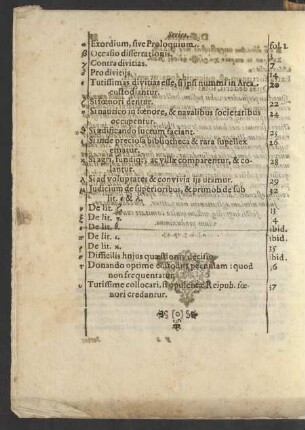 Series.
α Exordium, sive Proloquium. fol. 1.
β Occasio dissertationis.
γ Contra divitias. 7
δ Pro divitiis. 14
ε Tutissimas divitias esse, si ipsi nummi in Arca 20
custodiantur.
Si fœnori dentur.
Si nautico in fœnore, & navalibus societatibus
occupentur.
Si ædificando lucrum faciant. 25
Si inde preciosa bibliotheca & rara supellex 26
ematur.
Si agri, fundique ac villæ comparentur, & co-
lantur.
λ Si ad voluptates & convivia iis utamur. 29
μ Judicium de superioribus, & primò de sub 32
lit.
De lit.
ξ De lit. 4
De lit. θ. ibid.
De lit. ι.
De lit. κ. 15
Difficilis hujus quæstionis decisio. ibid.
τ Donando optimè collocari pecuniam: quod 16
non frequentatur.
υ Tutissimè collocari, si opulentæ Reipub. fœ- 37
nori credantur.